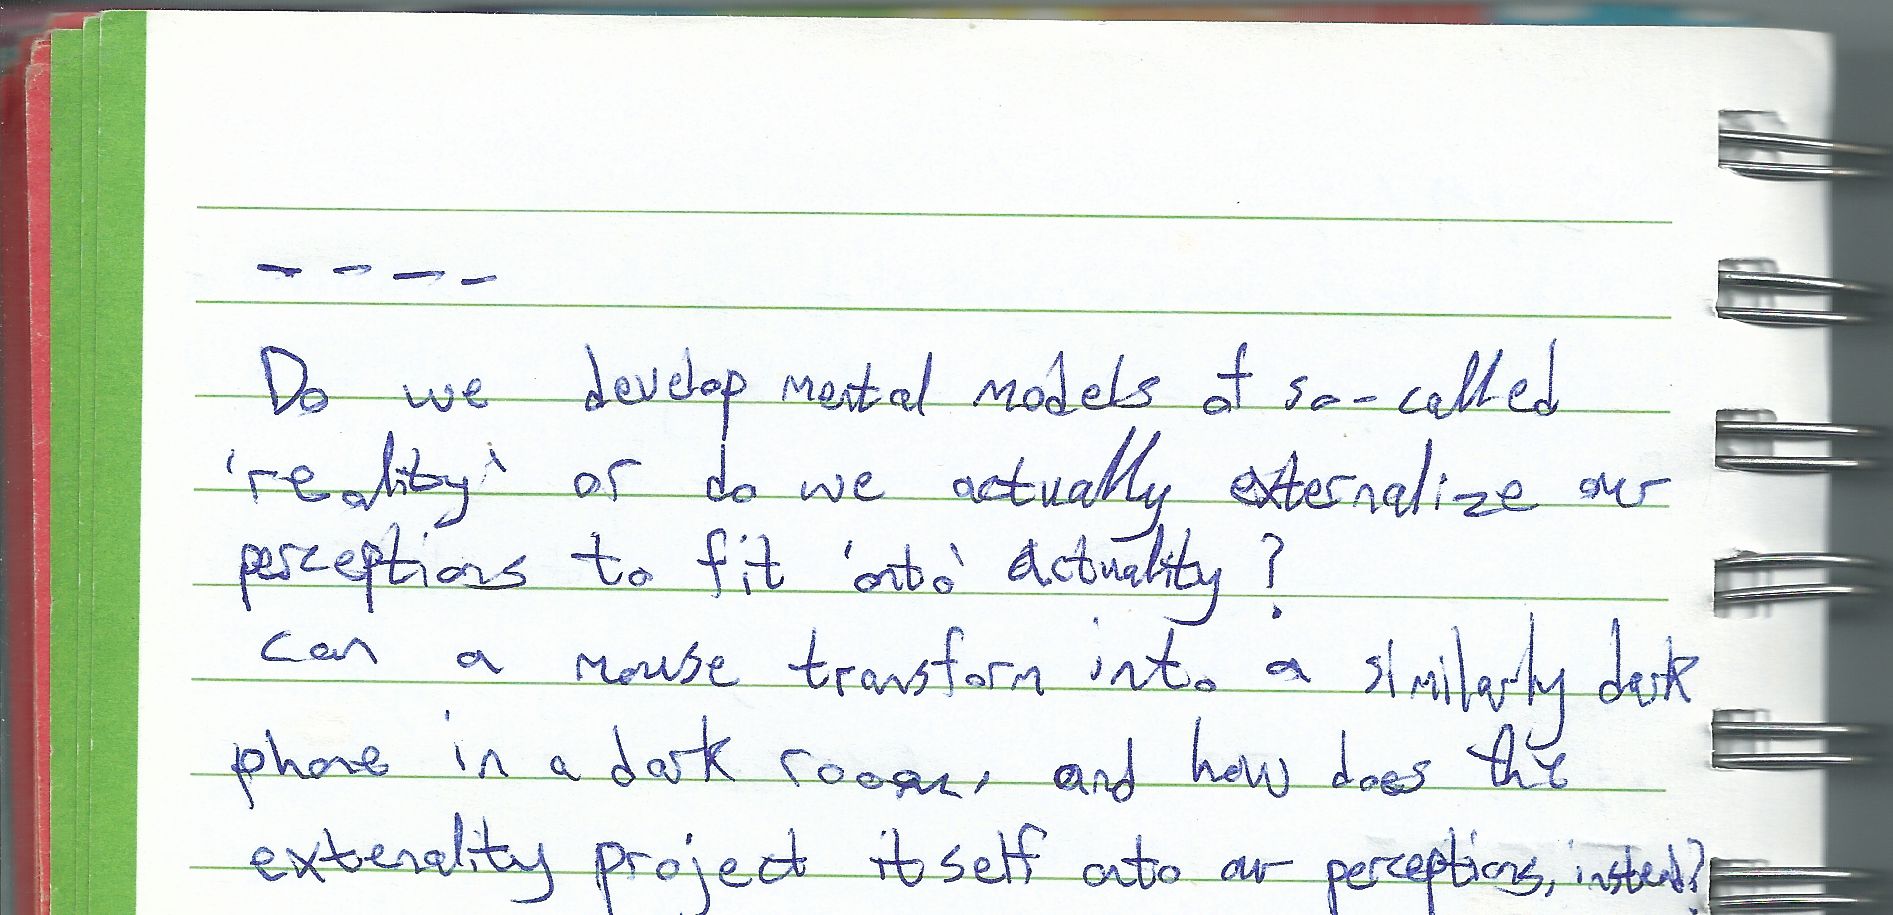 ----
Do we develop mental models of so-called
'reality' or do we actually externalize our
perceptions to fit 'onto' actuality?
Can a mouse transform into a similarly dark
phone in a dark room, and how does the
externality project itself onto our perceptions, instead?